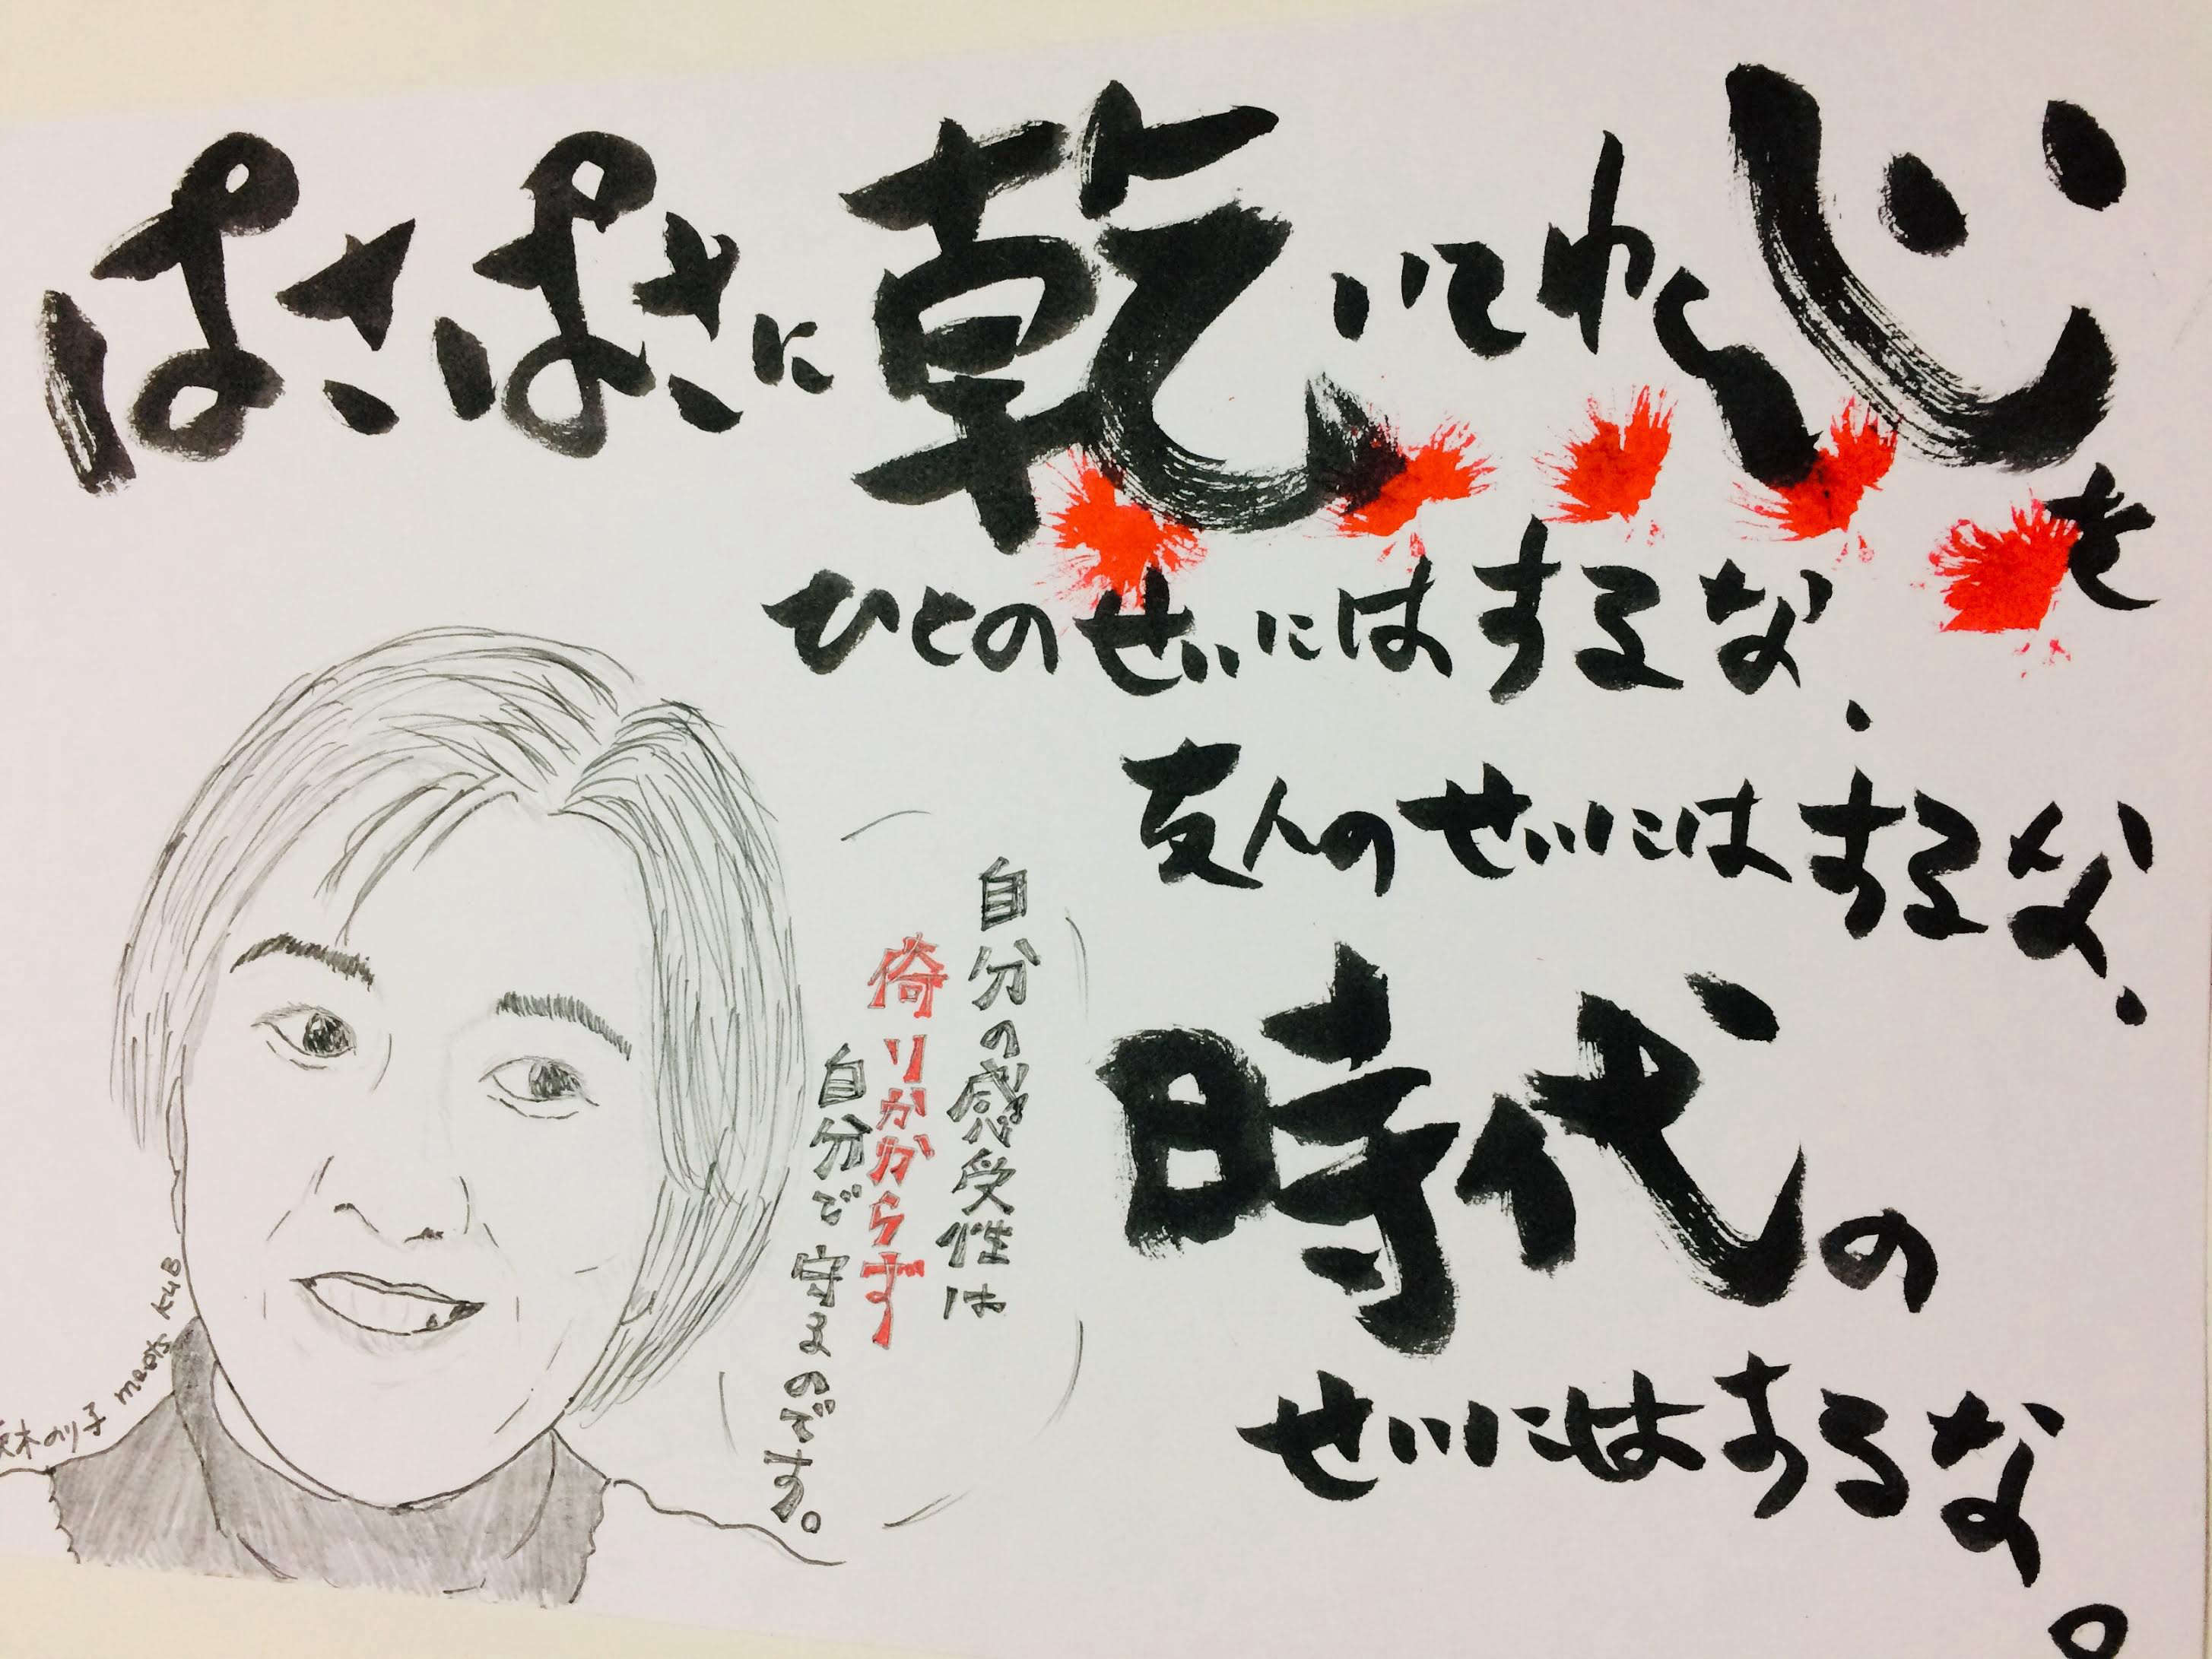 ぱさぱさに乾いてゆく心を
ひとのせいにはするな.
友人のせいにはするな.
時代の
せいにはするな。
自分の感受性は
倚りかからず
自分で守るのです。
茨木のり子 meets KuB